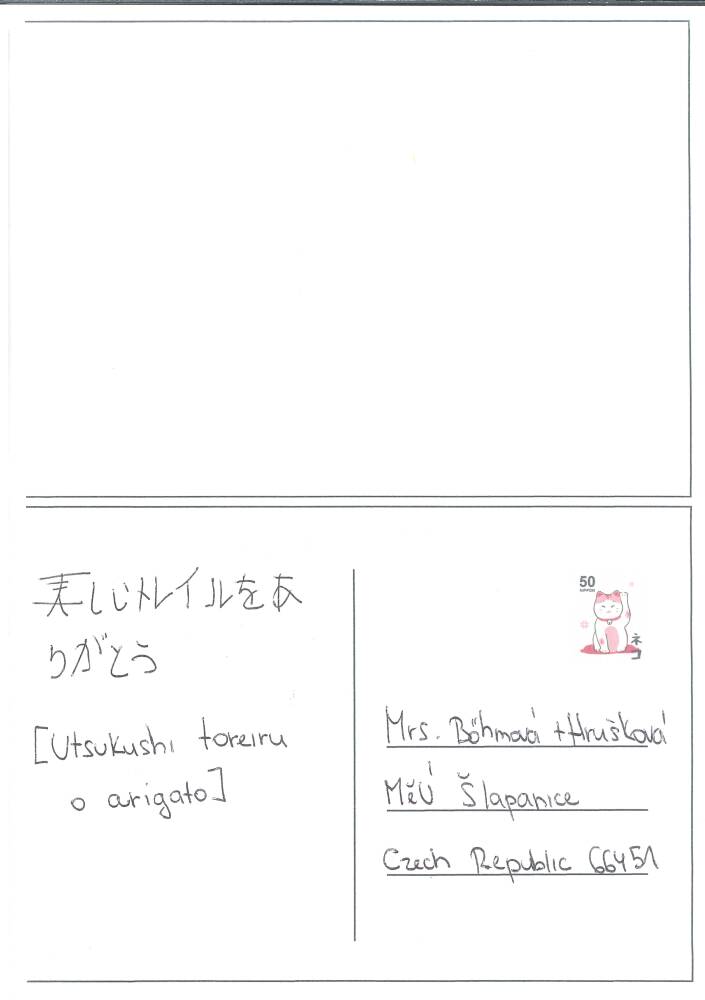 美しいトレイルをあ
りがとう
[Utsukushi toreiru
o arigato]
50
NIPPON
ネコ
Mrs. Böhmová + Hrušková
MěÚ Šlapanice
Czech Republic 66451